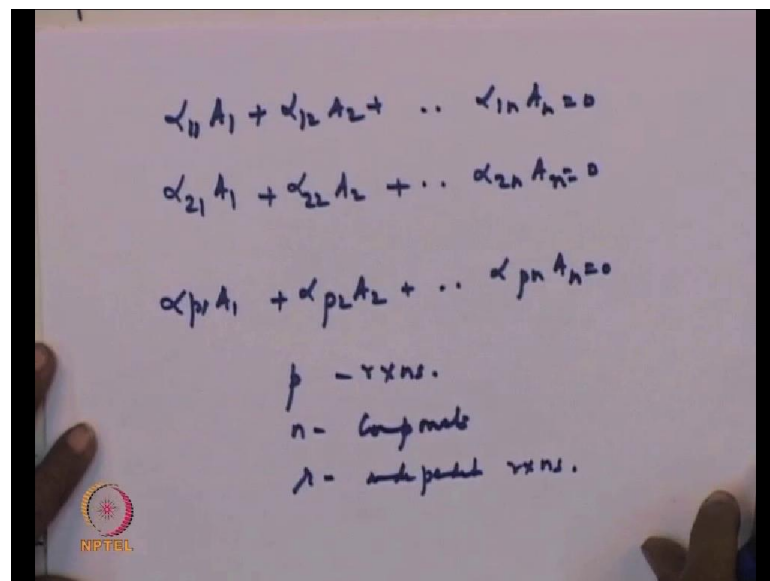 α₁₁ A₁ + α₁₂ A₂ + .. α₁ₙ Aₙ = 0
α₂₁ A₁ + α₂₂ A₂ + .. α₂ₙ Aₙ = 0
αp₁ A₁ + αp₂ A₂ + .. αpn Aₙ = 0
p - rxns.
n - Components
r - independent rxns.
NPTEL